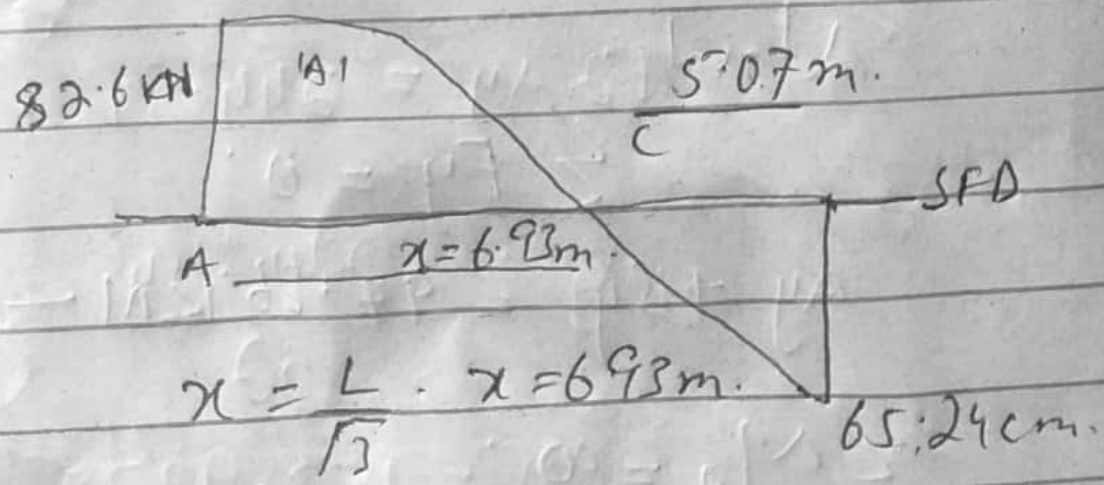 82.6 KN
'A1
5.07 m.
C
SFD
A
x = 6.93m.
x = L/√3 . x = 693m.
65.24 cm.